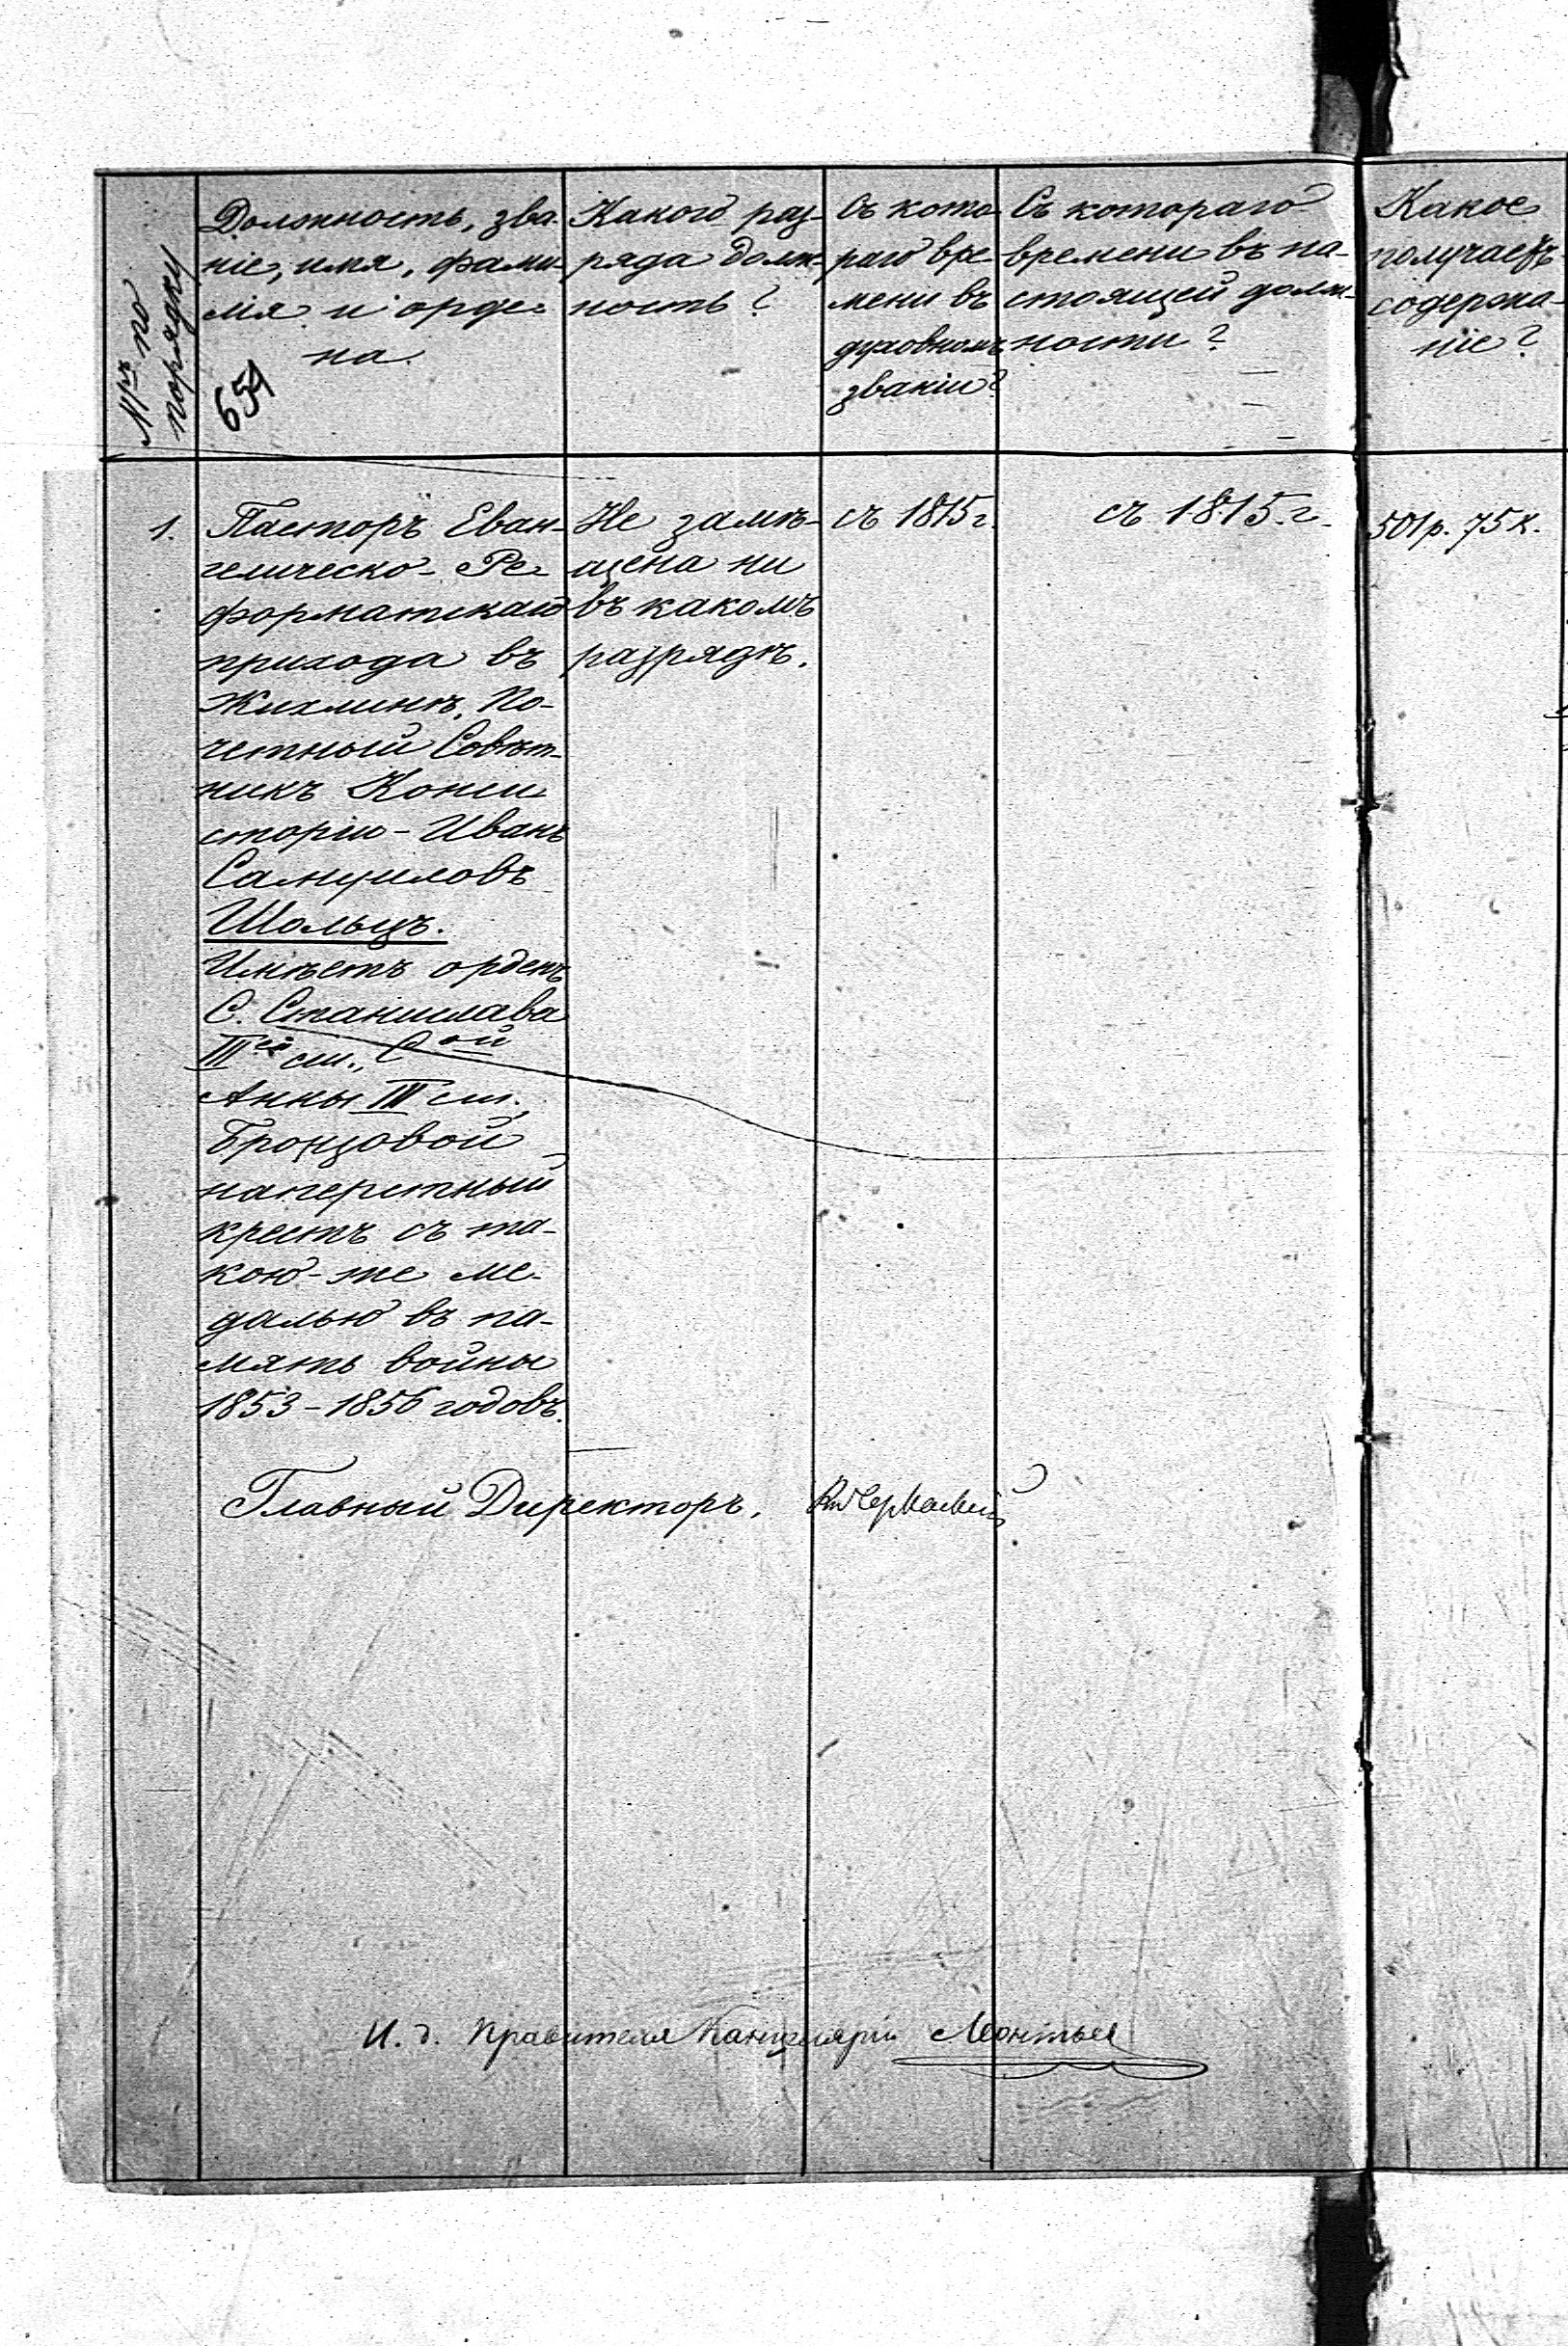 №ръ по
порядку
Должность, зва-
ніе, имя, фами-
лія и орде-
на.
654
Какого раз-
ряда долж-
ность?
Съ кото-
раго вре-
мени въ
духовномъ
званіи?
Съ котораго
времени въ на-
стоящей долж-
ности?
Какое
получаетъ
содержа-
ніе?
1.
Пасторъ Еван-
гелическо-Ре-
форматскаго
прихода въ
Жихлинѣ, По-
четный Совѣт-
никъ Конси-
сторіи - Иванъ
Самуиловъ
Шольцъ.
Имѣетъ орденъ
С. Станислава
IIIей ст., Сой
Анны III ст.,
Бронзовой
наперстный
крестъ съ та-
кою-же ме-
далью въ па-
мять войны
1853-1856 годовъ.
Не замѣ-
щена ни
въ какомъ
разрядѣ.
съ 1815 г.
съ 1815. г.
501 р. 75 к.
Главный Директоръ,
И. д. Правителя Канцеляріи